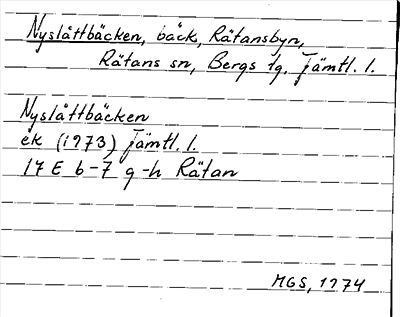 Nyslåttbäcken, bäck, Rätansbyn,
Rätans sn, Bergs tg. Jämtl. l.
Nyslåttbäcken
ek (1973) Jämtl. l.
17 E 6-7 g-h Rätan
MGS, 1974